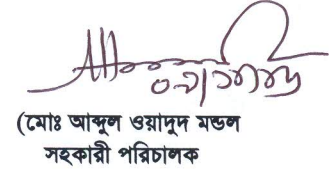 (মোঃ আব্দুল ওয়াদুদ মন্ডল
সহকারী পরিচালক